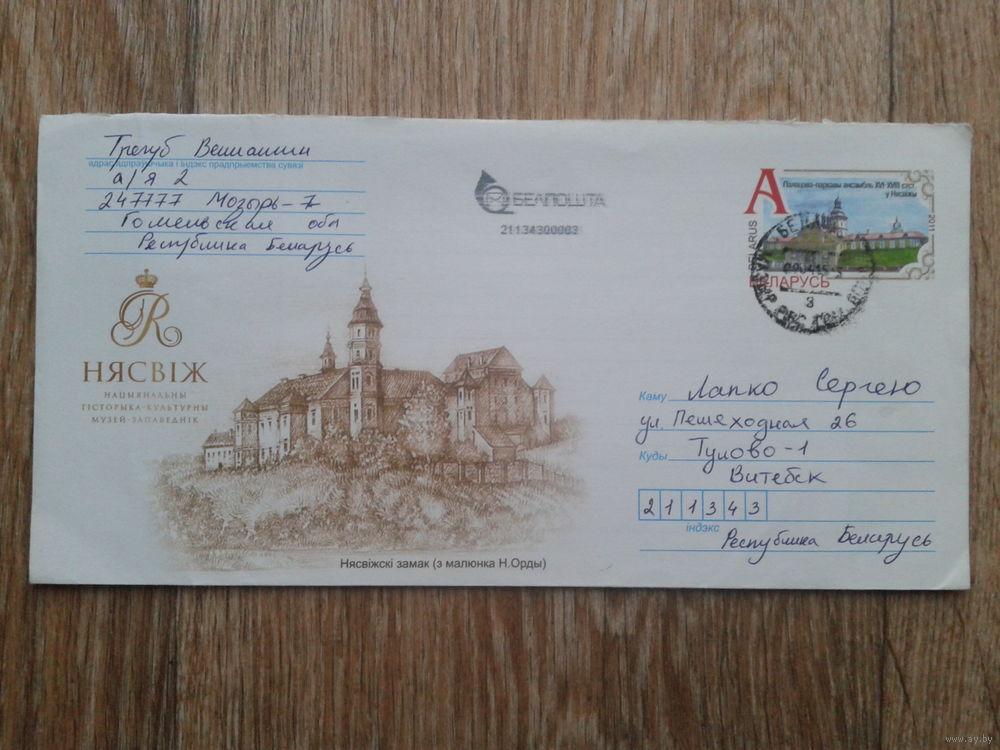 Трегуб
адрас адпраўшчыка і індэкс прадпрыемства сувязі
а/я 2
247777 Мозырь-7
Гомельская обл
Республика Беларусь
БЕЛПОШТА
21134300003
А
Палацава-паркавы ансамбль XVI-XVIII стст.
у Нясвіжы
BELARUS
2011
БЕЛАРУСЬ
3
R
НЯСВІЖ
НАЦЫЯНАЛЬНЫ
ГІСТОРЫКА-КУЛЬТУРНЫ
МУЗЕЙ-ЗАПАВЕДНІК
Каму Лапко Сергею
ул. Пешеходная 26
Куды Тулово-1
Витебск
211343
індэкс
Республика Беларусь
Нясвіжскі замак (з малюнка Н.Орды)
www.ay.by